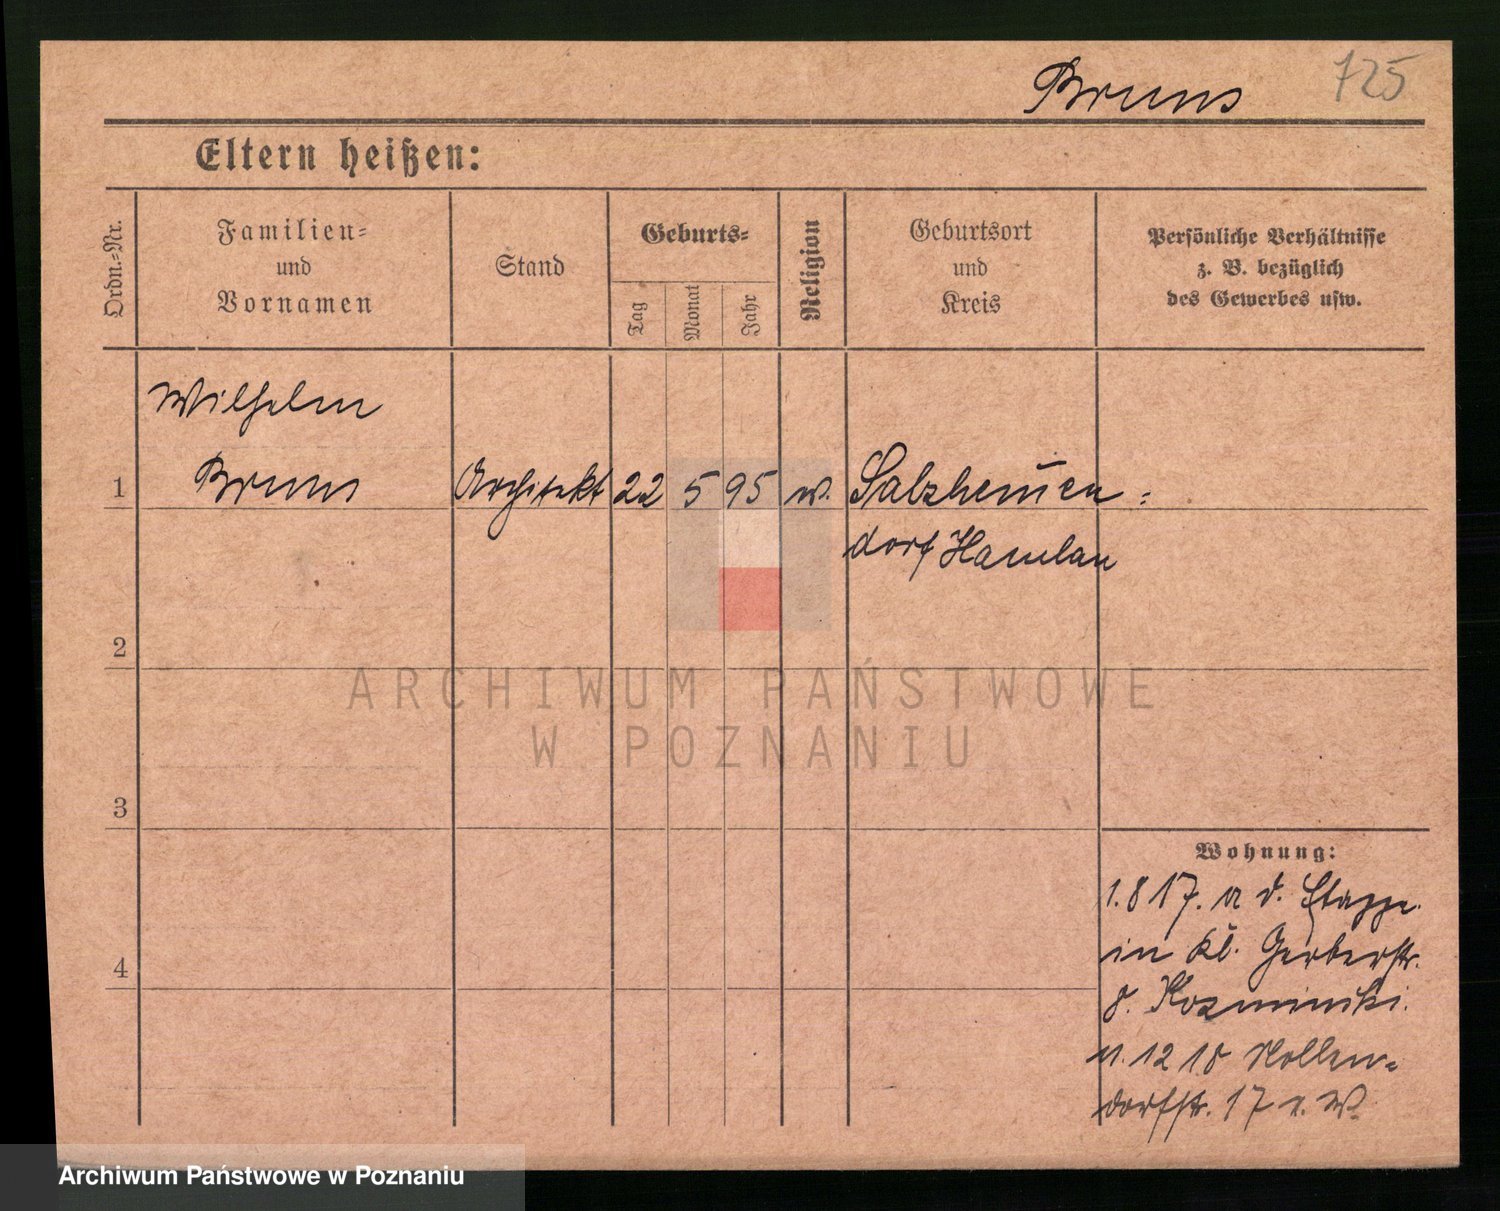 Bruns 725
Eltern heißen:
Ordn.-Nr.
Familien-
und
Vornamen
Stand
Geburts-
Tag
Monat
Jahr
Religion
Geburtsort
und
Kreis
Persönliche Verhältnisse
z. B. bezüglich
des Gewerbes usw.
Wilhelm
1 Bruns Architekt 22 5 95 Salzhemmen-
dorf Hameln
2
3
4
Wohnung:
1.8 17. a d. Etappe.
in Kl. Gerberstr.
8. Kozminski.
11.12 18 Nollen-
dorfstr. 17 W.
ARCHIWUM PAŃSTWOWE
W POZNANIU
Archiwum Państwowe w Poznaniu